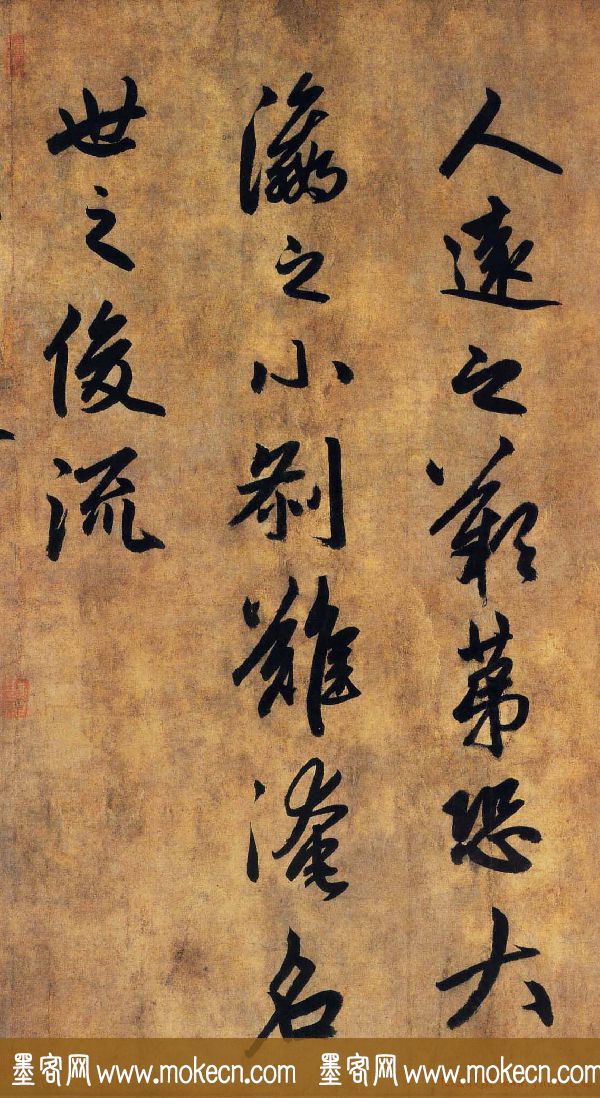 人遠之歎第恐大
瀛之小刹難淹名
世之俊流
墨客网 www.mokecn.com 墨客网 www.mokecn.com